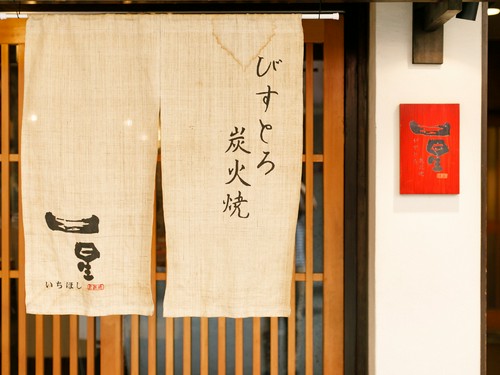 びすとろ
炭火焼
一星
いちほし
一星